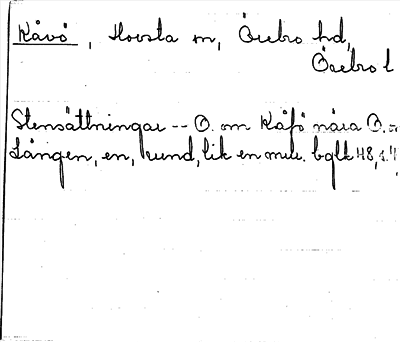 Kåvö, Hovsta sn, Örebro hd,
Örebro l
Stensättningar -- O. om Kåfö nära O.
Lången, en, rund, lik en mur. bglk 48,4.